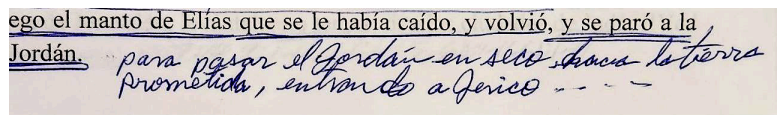 ego el manto de Elías que se le había caído, y volvió, y se paró a la
Jordán.
para pasar el Jordán en seco, hacia la tierra
prometida, entrando a Jerico - - - -